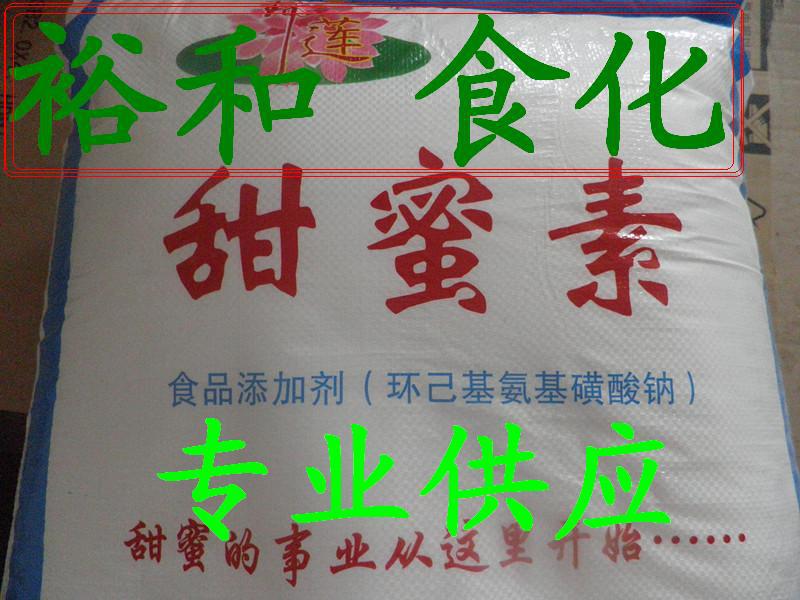 莲
裕和 食化
甜蜜素
食品添加剂（环己基氨基磺酸钠）
专业供应
甜蜜的事业从这里开始……